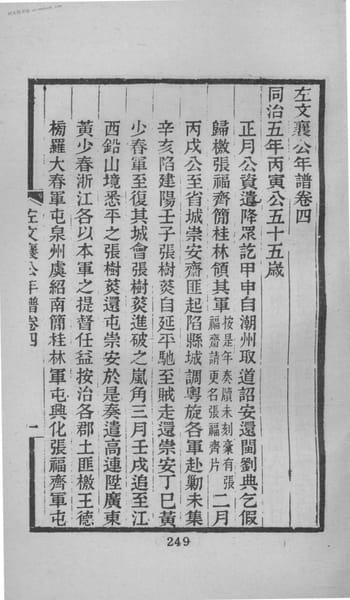 左文襄公年譜卷四
同治五年丙寅公五十五歲
正月公資遣降眾訖甲申自潮州取道詔安還閩劉典乞假
歸檄張福齊簡桂林領其軍按是年奏牘未刻彙有張福齋請更名張福齊片二月
丙戌公至省城崇安齋匪起陷縣城調粵旋各軍赴勦未集
辛亥陷建陽壬子張樹菼自延平馳至賊走還崇安丁巳黃
少春軍至復其城會張樹菼進破之嵐角三月壬戌追至江
西鉛山境悉平之張樹菼還屯崇安於是奏遣高連陞廣東
黃少春浙江各以本軍之提督任益按治各郡土匪檄王德
榜羅大春軍屯泉州虞紹南簡桂林軍屯興化張福齊軍屯
左文襄公年譜卷四
一
249